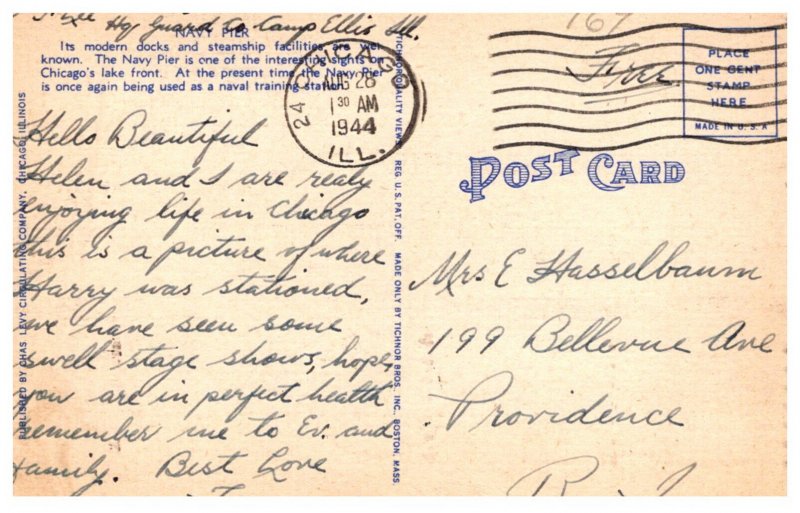 Hq Guard to Camp Ellis Ill.
NAVY PIER
Its modern docks and steamship facilities are well
known. The Navy Pier is one of the interesting sights on
Chicago's lake front. At the present time the Navy Pier
is once again being used as a naval training station.
Hello Beautiful
Helen and I are realy
enjoying life in Chicago
this is a picture of where
Harry was stationed,
we have seen some
swell stage shows, hope,
you are in perfect health
remember me to Ev. and
family. Best Love
PUBLISHED BY CHAS. LEVY CIRCULATING COMPANY, CHICAGO, ILLINOIS
TICHNOR QUALITY VIEWS REG. U. S. PAT. OFF. MADE ONLY BY TICHNOR BROS. INC., BOSTON, MASS.
CHICAGO
24
AUG 28
1 30 AM
1944
ILL.
167
Free
PLACE
ONE CENT
STAMP
HERE
MADE IN U. S. A.
POST CARD
Mrs E Hasselbaum
199 Bellevue Ave
Providence
R. I.